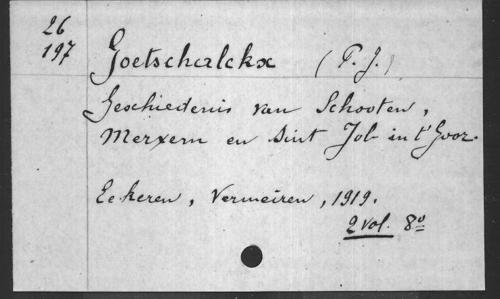 26
197
Goetschalckx (P. J.)
Geschiedenis van Schooten,
Merxem en Sint Job in t' Goor.
Eekeren, Vermeiren, 1919.
2 vol. 8°